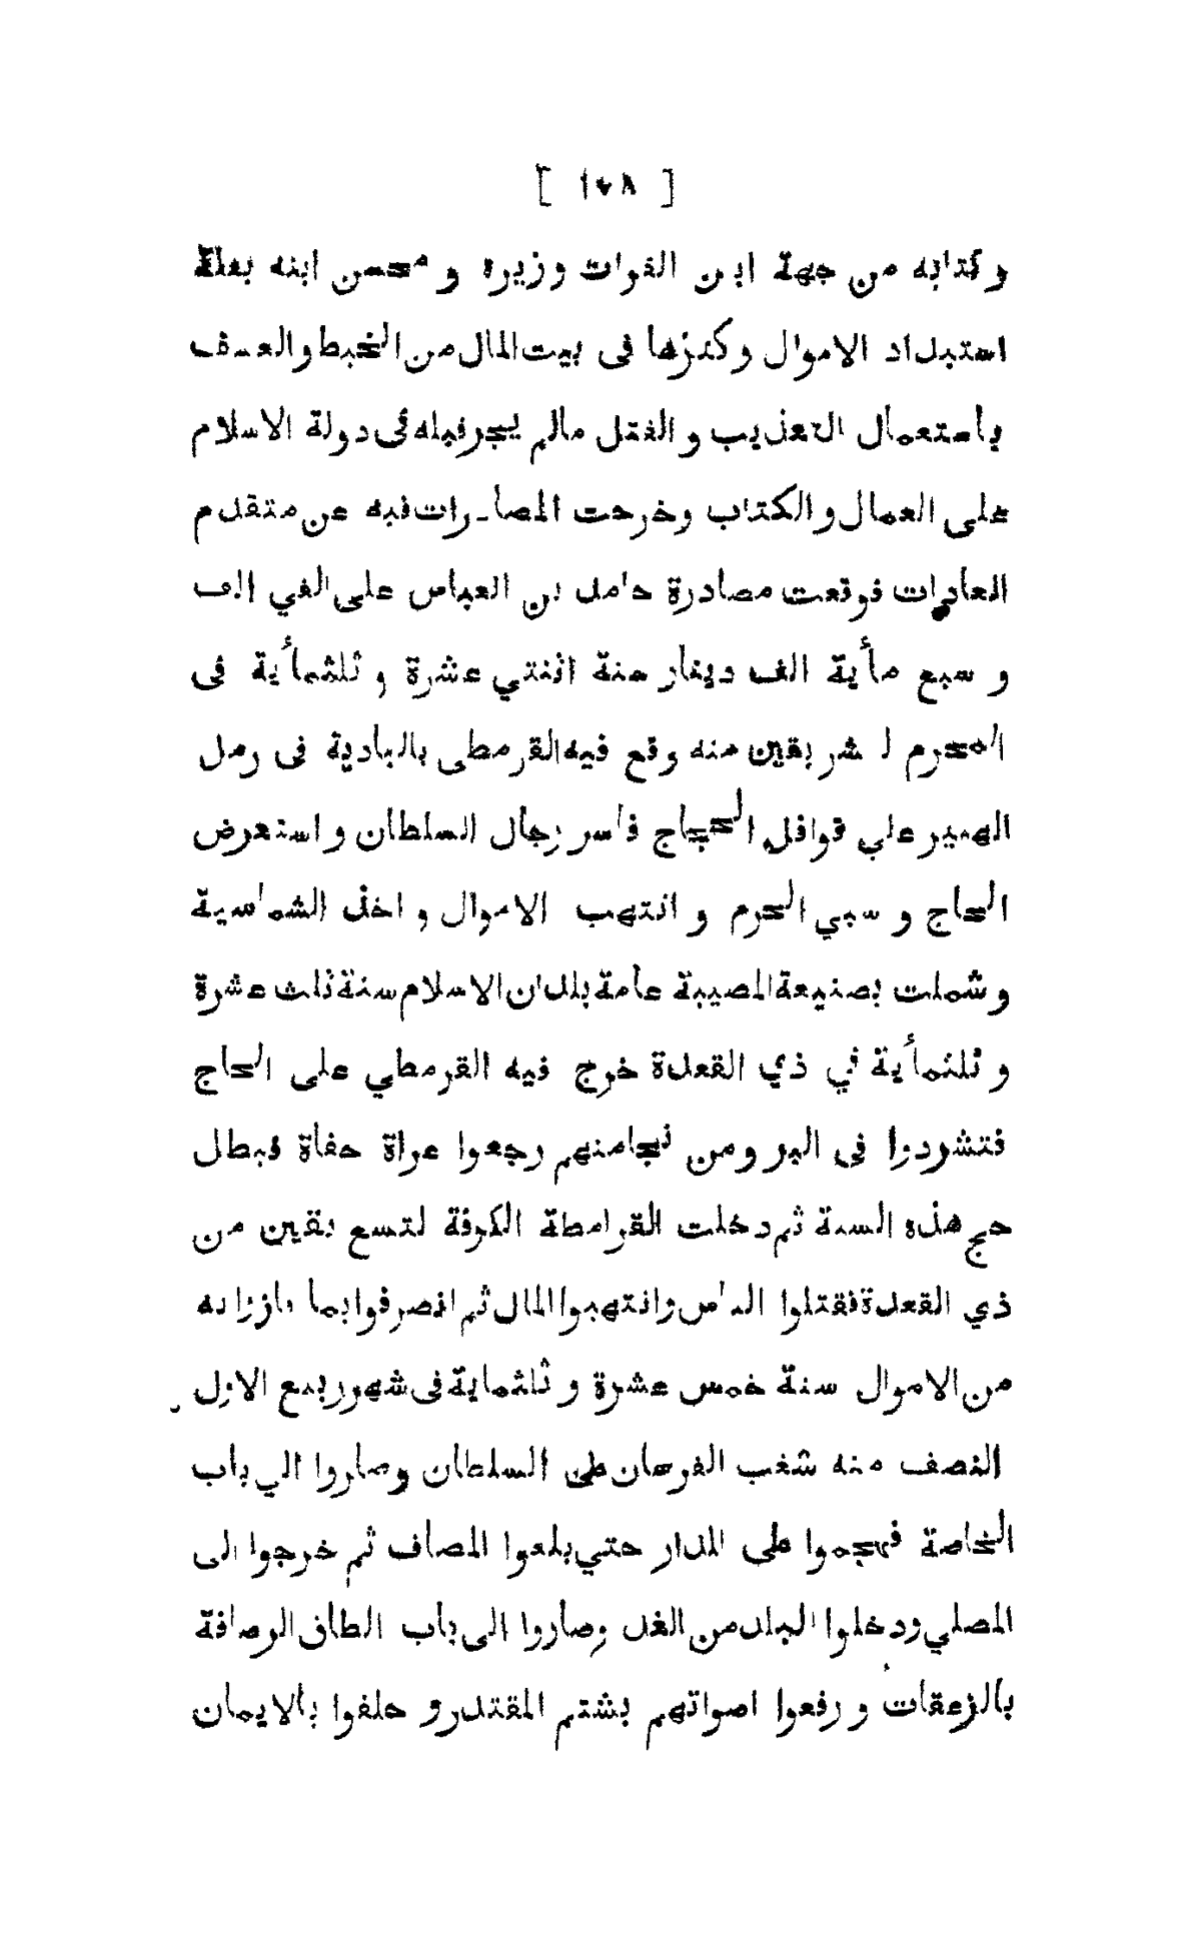 [ ١٧٨ ]
وكتابه من جهة ابن الفرات وزيره و محسن ابنه بعلة
استبداد الاموال وكنزها فى بيت المال من الخبط والعسف
باستعمال التعذيب و القتل مالم يجر قبله فى دولة الاسلام
على العمال و الكتاب وخرجت المصادرات فيه عن متقدم
العادات فوقعت مصادرة حامد بن العباس على الفي الف
و سبع مأية الف دينار سنة اثنتي عشرة و ثلثمأية فى
المحرم لـ شر بقين منه وقع فيه القرمطى بالبادية فى رمل
الهبير علي قوافل الحجاج فاسر رجال السلطان و استعرض
الحاج و سبي الحرم و انتهب الاموال و اخذ الشماسية
و شملت بصنيعة المصيبة عامة بلدان الاسلام سنة ثلث عشرة
و ثلثمأية في ذي القعدة خرج فيه القرمطي على الحاج
فتشردوا فى البر ومن نجامنهم رجعوا عراة حفاة فبطل
حج هذه السنة ثم دخلت القرامطة الكوفة لتسع بقين من
ذي القعدة فقتلوا الناس وانتهبوا المال ثم انصرفوا بما فازوا به
من الاموال سنة خمس عشرة و ثلثماية فى شهور ربيع الاول
النصف منه شغب الفرسان على السلطان وصاروا الي باب
الخاصة فهجموا على الدار حتي بلغوا المصاف ثم خرجوا الى
المصلي ودخلوا البلد من الغد وصاروا الى باب الطاق الرصافة
بالزعقات و رفعوا اصواتهم بشتم المقتدر و حلفوا بالايمان